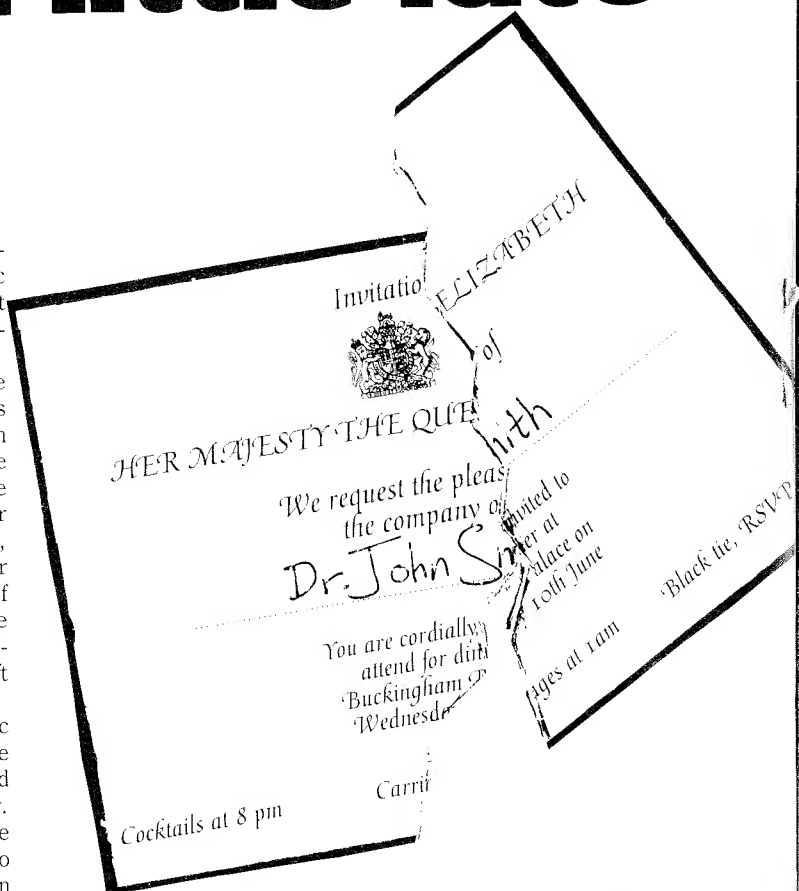 little late
Invitatio
HER MAJESTY THE QUE
We request the pleas
the company o
Dr. John Sm
You are cordially
attend for din
Buckingham P
Wednesda
Cocktails at 8 pm
Carri
ELIZABETH
of
hith
invited to
er at
alace on
10th June
ages at 1am
Black tie, RSVP